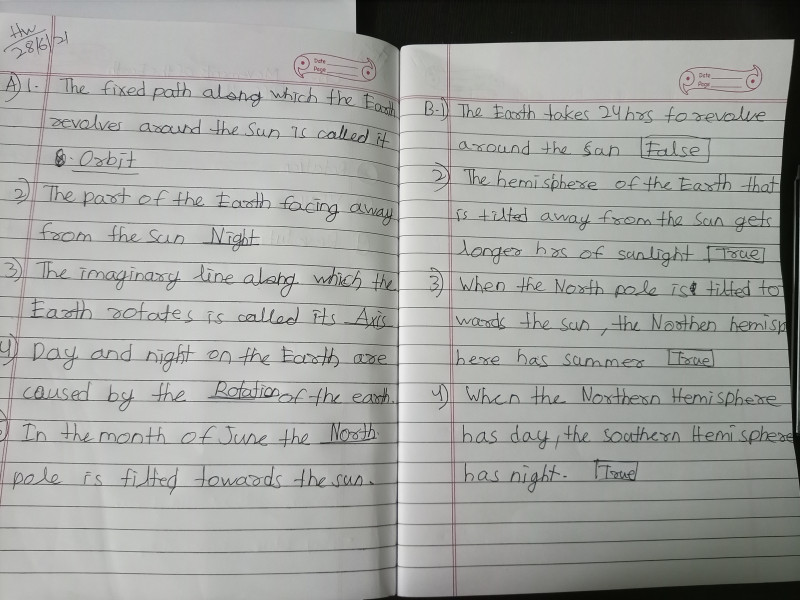 HW
28/6/21
Date
Page
A) 1. The fixed path along which the Earth
revolves around the sun is called it
Orbit
2) The part of the Earth facing away
from the sun Night
3) The imaginary line along which the
Earth rotates is called its Axis
4) Day and night on the Earth are
caused by the Rotation of the earth.
In the month of June the North
pole is tilted towards the sun.
Date
Page
B-1) The Earth takes 24hrs to revolve
around the sun False
2) The hemisphere of the Earth that
is tilted away from the sun gets
longer hrs of sunlight True
3) When the North pole is tilted to
wards the sun, the Northen hemisp
here has summer True
4) When the Northern Hemisphere
has day, the southern Hemisphere
has night. True